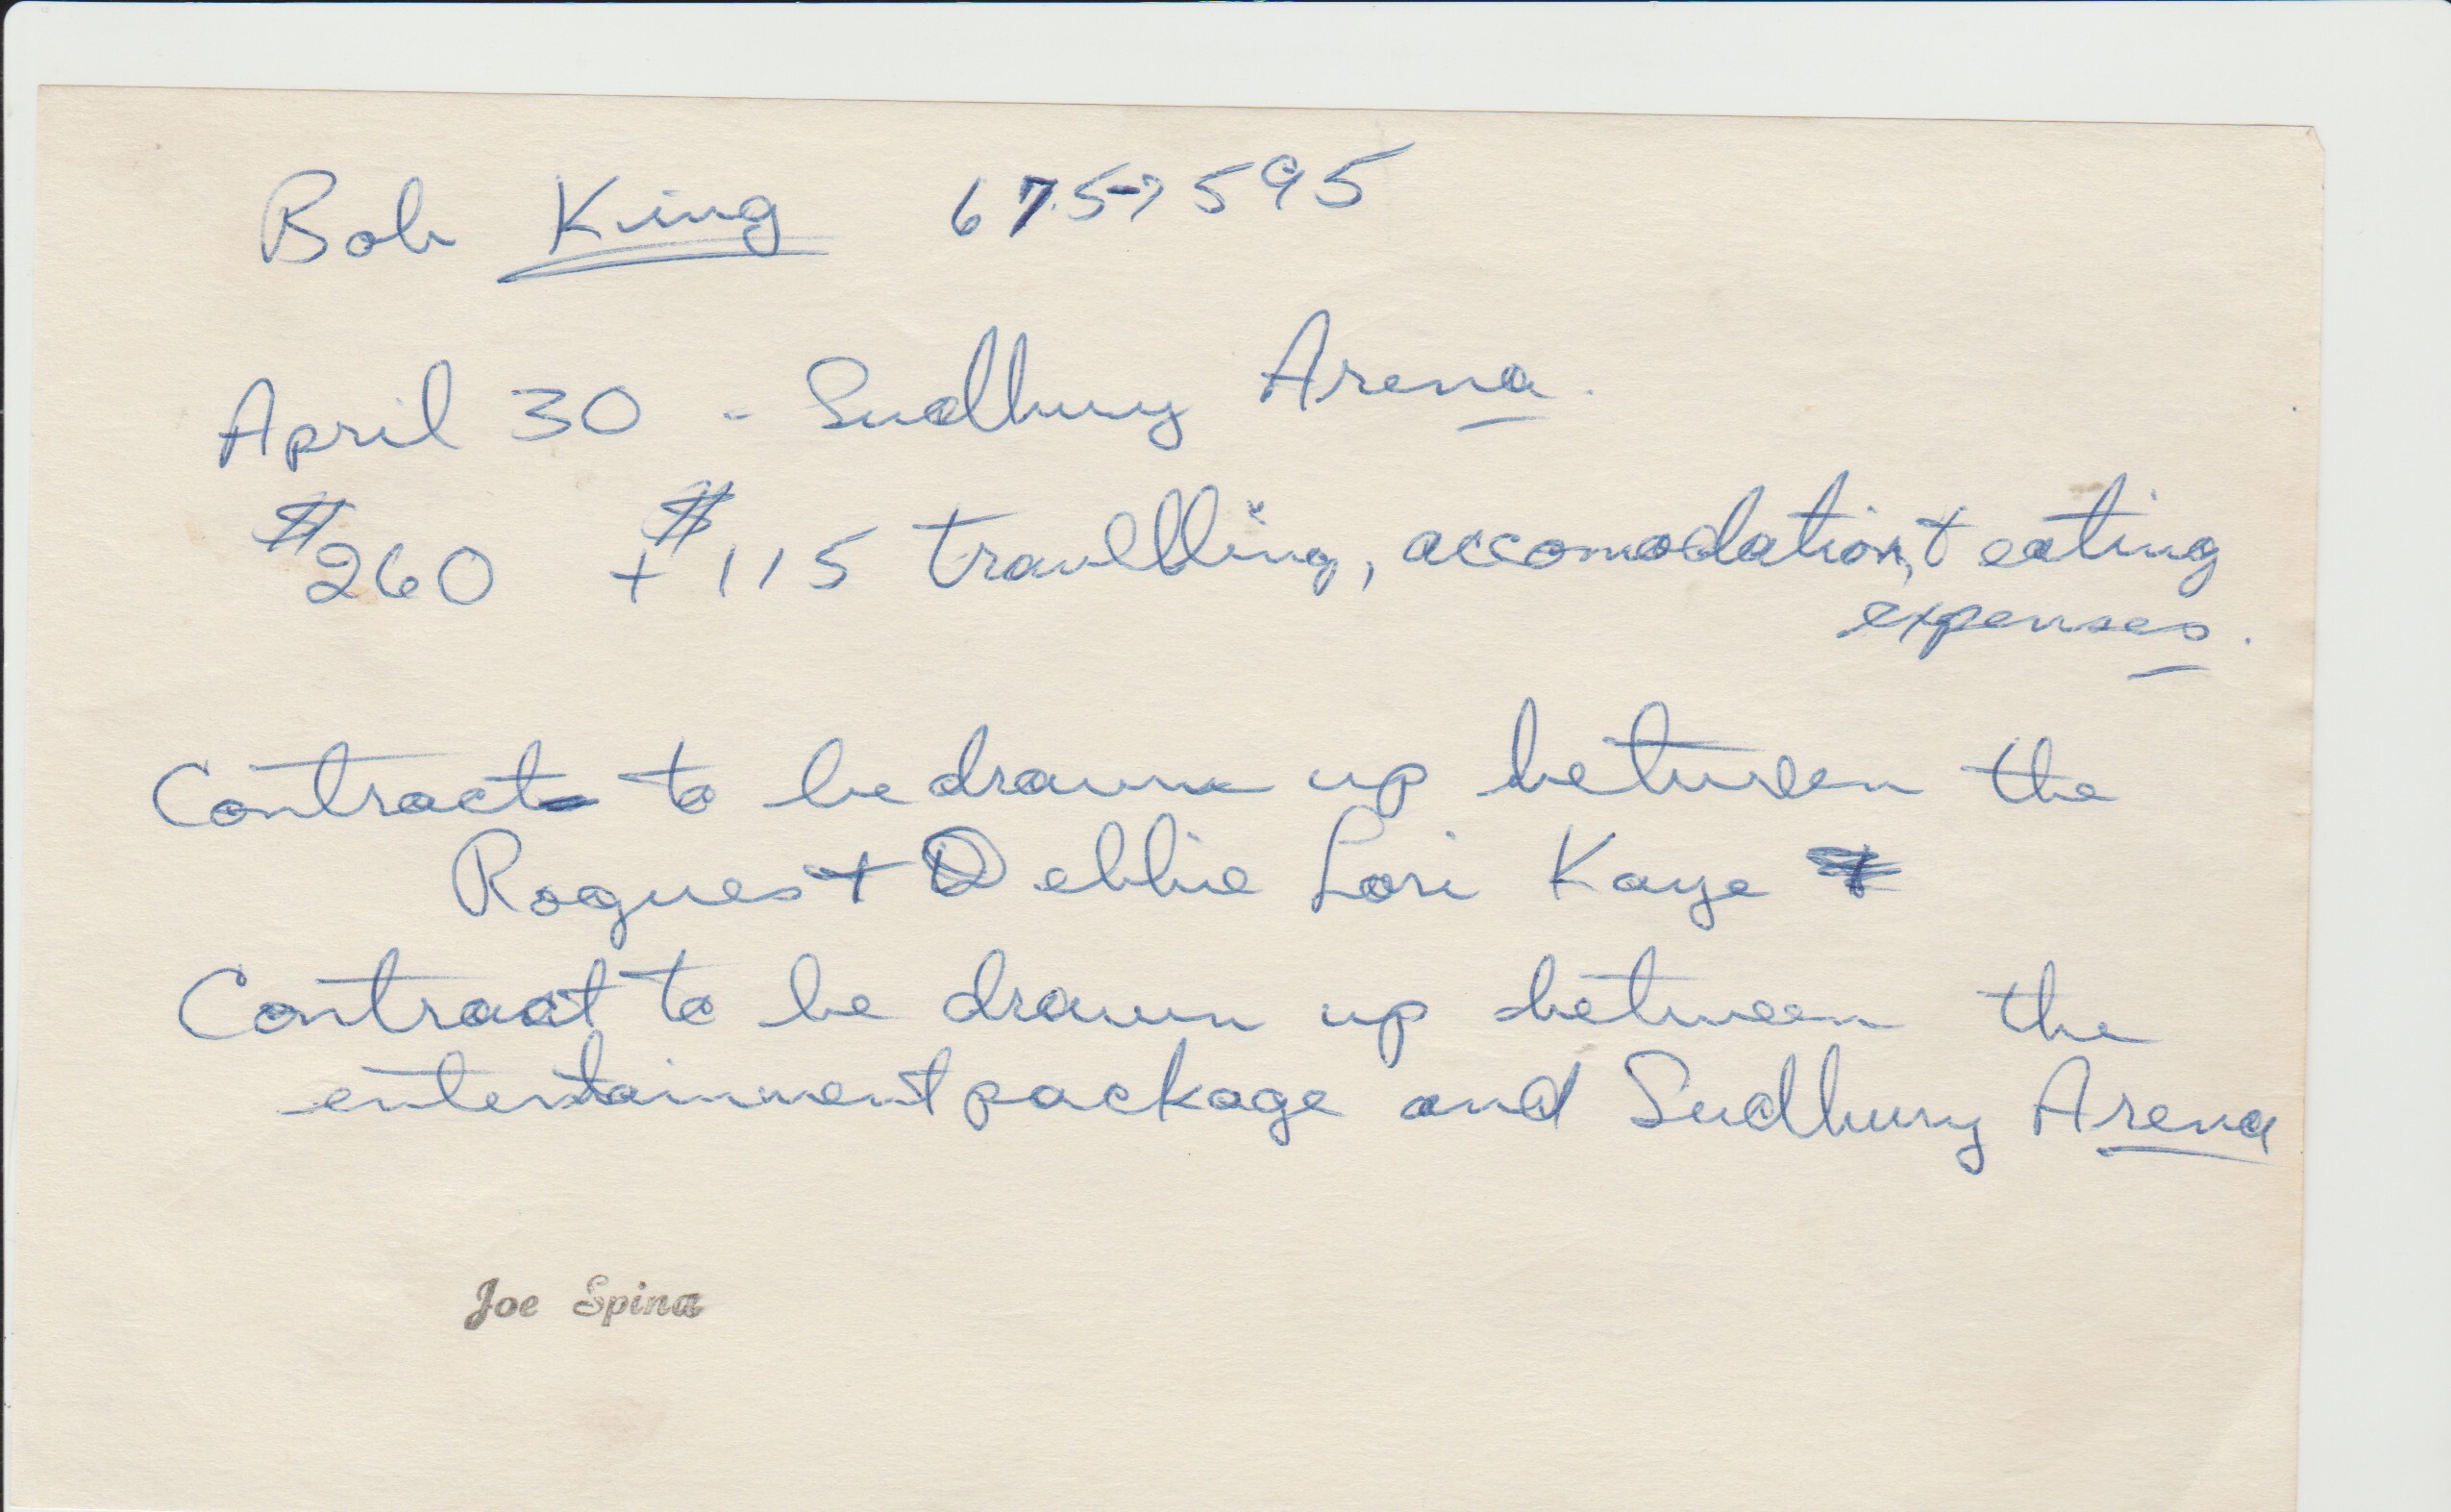 Bob King 675-7595
April 30 - Sudbury Arena.
$260 + $115 travelling, accomodation, + eating
expenses.
Contract to be drawn up between the
Rogues + Debbie Lori Kaye
Contract to be drawn up between the
entertainment package and Sudbury Arena
Joe Spina